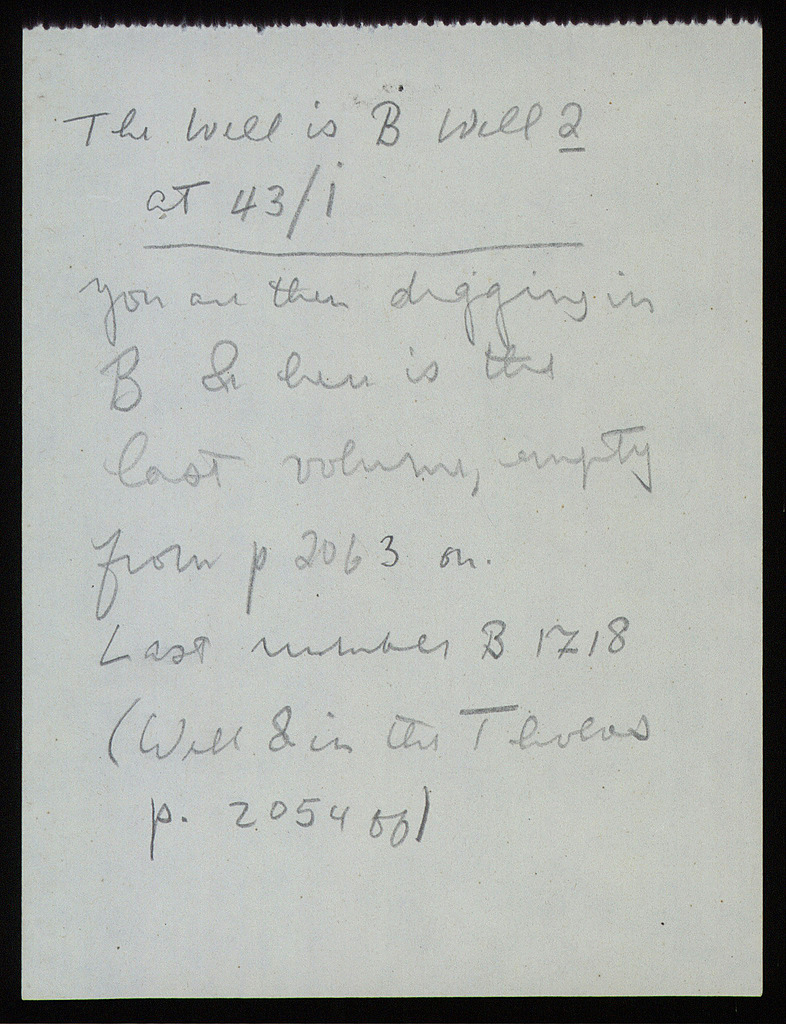 The Well is B Well 2
at 43/i
you are then digging in
B & here is the
last volume, empty
from p 2063 on.
Last number B 1718
(Well & in the Tholos
p. 2054 ff)